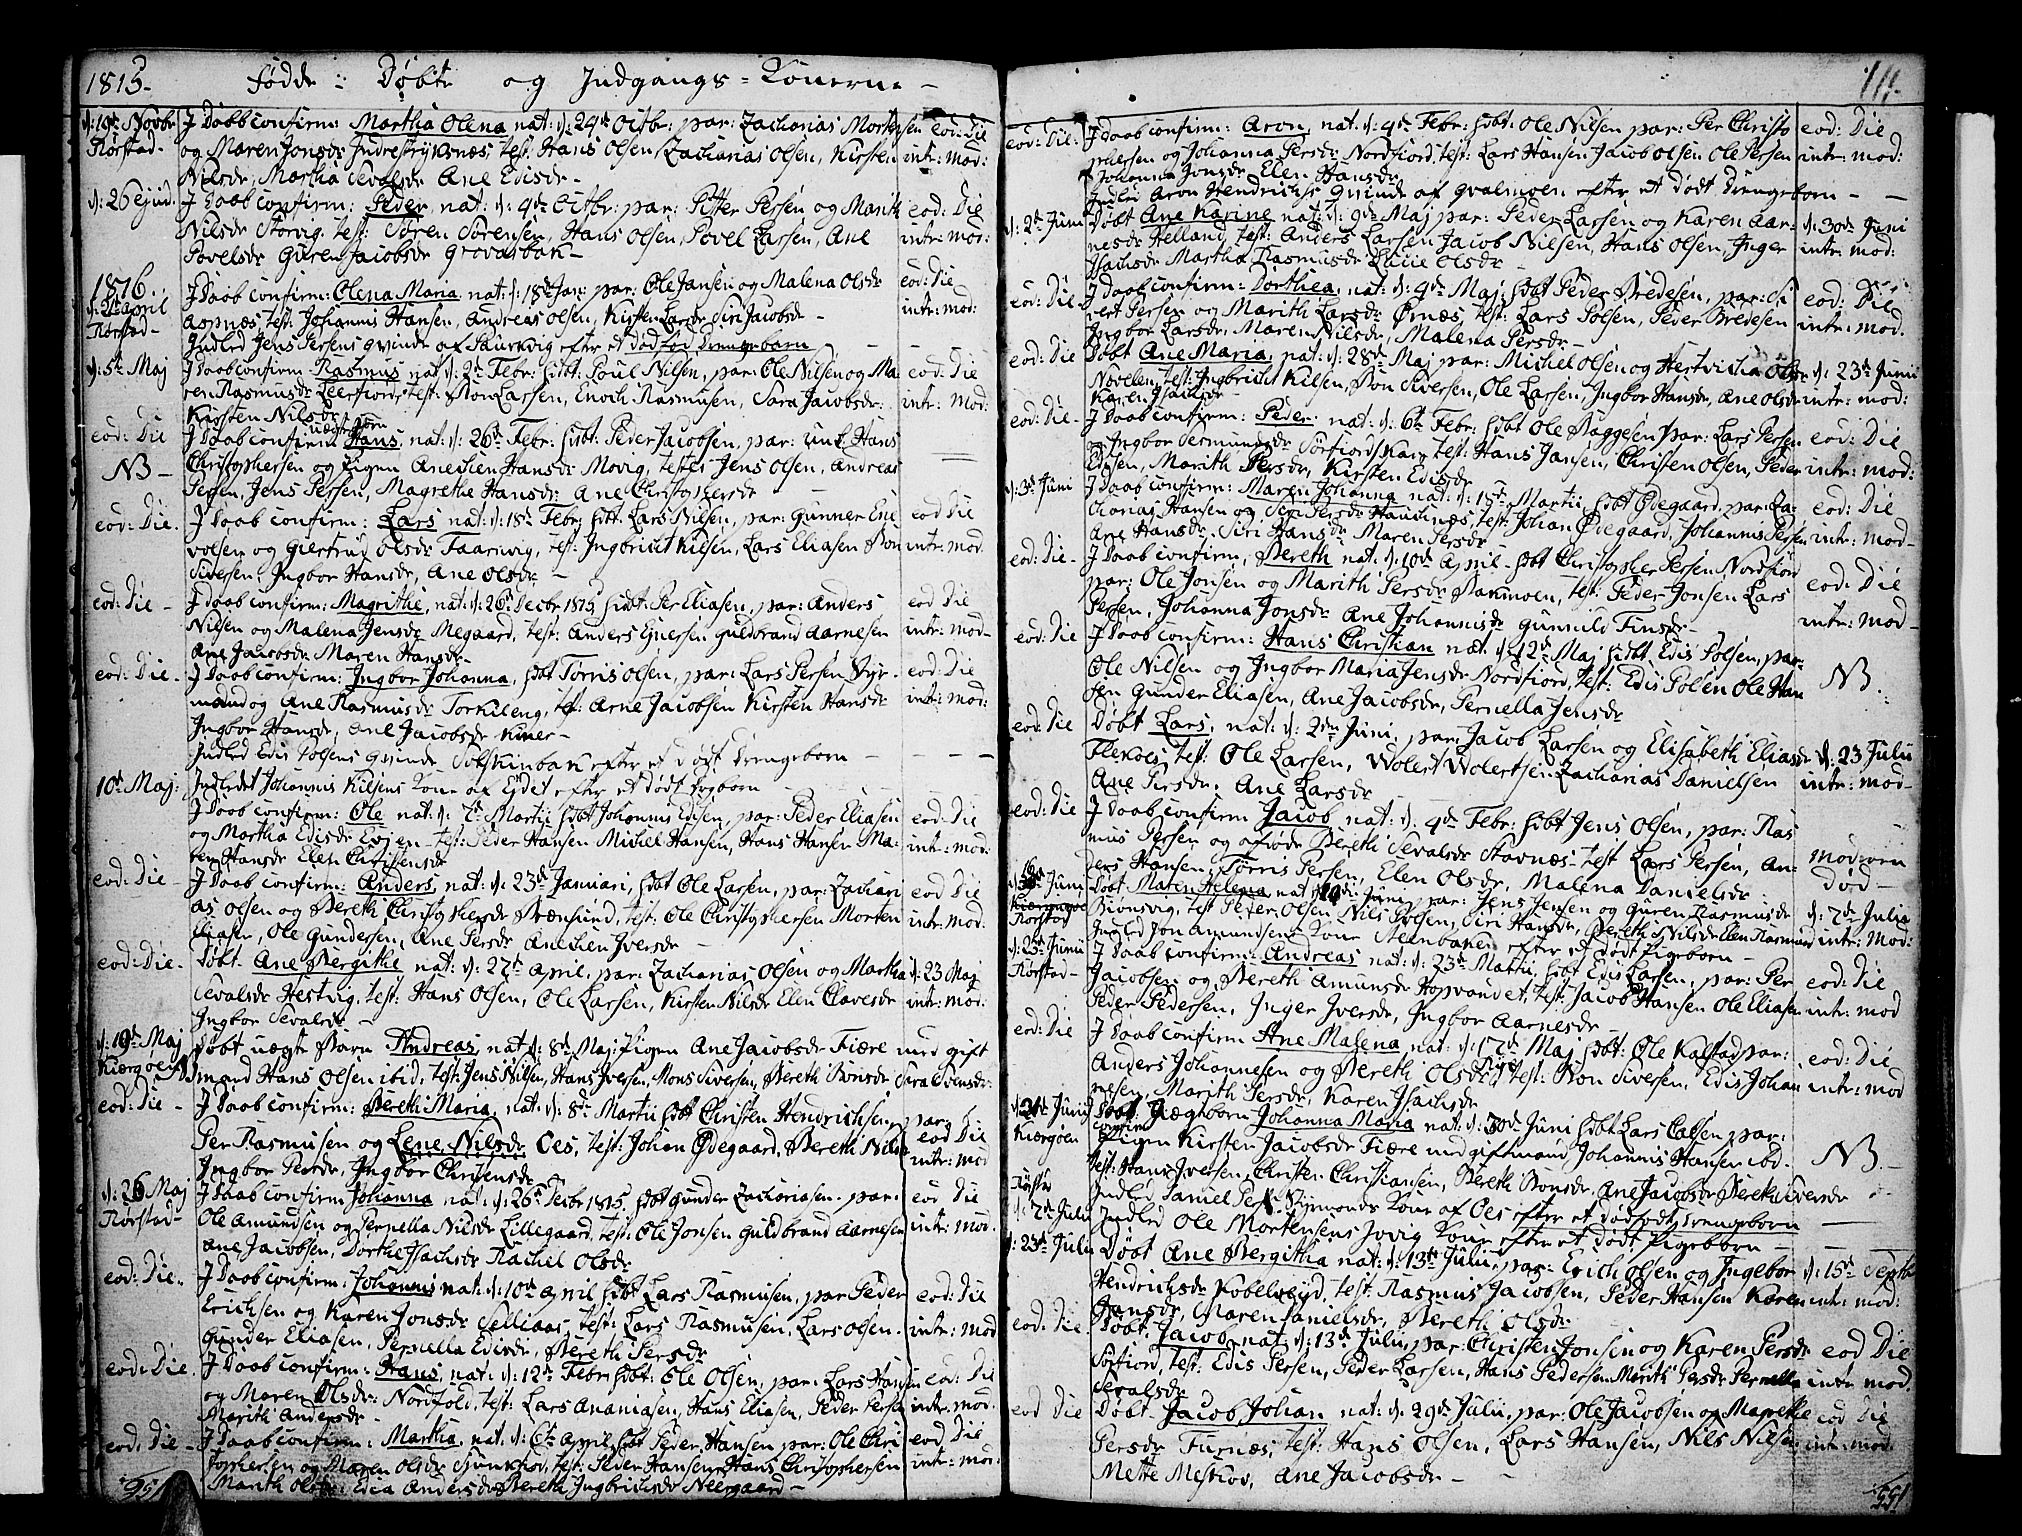 1815. Fødde : Døbte og Indgangs = Konerne –
d: 19de Novbr I Daab confirm: Martha Olena nat: d: 24de Octbr: par: Zacharias Morten eod: Die
Rørstad – og Maren Jonsdr Indrestrøksnæs, test: Hans Olsen, Zacharias Olsen, Kirsten intr: mod:
Nilsdr, Martha Sevalsdr Ane Edisdr –
d: 26 ejusd. I Daab confirm: Peder nat: d: 4de Octbr: par: Pitter Persen og Marith eod: Die
Nilsdr Storvig, test: Sören Sörensen, Hans Olsen, Povel Larsen, Ane intr: mod:
Povelsdr Guren Jacobsdr
1816.
I Daab confirm: Olena Maria nat: d: 18de Jan: par: Ole Jansen og Malena Olsdr eod: Die
Rørstad – Aspnæs, test: Johannis Hansen, Andreas Olsen, Kirsten Larsdr Siri Jacobsdr – intr: mod:
Indled Jens Persens Qvinde af efter et dødfød Drengebarn – –
d: 5te Maj I Daab confirm: Rasmus nat: d: 2de Febr: hdbt: Poul Nilsen, par: Ole Nilsen og Ma- eod: Die
ren Rasmusdr Leerfiord, test: Ron Larsen, Enoch Rasmusen, Sara Jacobsdr: intr: mod:
Kirsten Nilsdr
uægte børn
eod: Die I Daab confirm: Hans, nat: d: 26de Febr: hdbt: Peder Jacobsen, par: unk. Hans
NB – Christophersen og Pigen Anechen Hansdr Movig, testes Jens Olsen, Andreas
Persen, Jens Persen, Magrethe Hansdr: Ane Christophersdr –
eod: Die. I Daab confirm: Lars nat: d: 18de Febr: hdbt: Lars Nilsen, par: Gunner Ene eod Die
volsen og Giertrud Olsdr Taarnvig, test: Ingbricht Kilsen, Lars Eliasen Ron intr: mod.
Siversen, Ingbor Hansdr, Ane Olsdr –
eod: Die – I Daab confirm: Magrethe, nat: d: 26de Decbr 1815 hdbt: Per Eliasen, par: Anders eod Die
Nilsen og Malena Jensdr Megaard, test: Anders Ejnersen Guldbrand Aarnesen intr: mod –
Ane Jacobsdr Maren Hansdr –
eod: Die – I Daab confirm: Ingbor Johanna, hdbt Torris Olsen, par: Lars Persen Styr- eod: Die
mand og Ane Rasmusdr Torkileng, test: Arne Jacobsen Kirsten Hansdr intr: mod:
Ingbor Hansdr, Ane Jacobsdr
Indled Edis Polsens Qvinde efter et dødt Drengebarn – – –
10de Maj: Indledt Johannis Kilsens Kone af Ejdet efter et dødt Pigebarn –
I Daab confirm: Ole nat: d: 7de Martii hdbt Johannis Edisen, par: Peder Eliasen eod: Die
og Martha Edisdr Evjen – test: Peder Hansen Michel Hansen, Hans Hansen Ma- intr: mod.
ren Hansdr Elen Christensdr
eod: Die – I Daab confirm: Anders, nat: d: 23de Januari, hdbt Ole Larsen, par: Zachari eod Die
as Olsen og Bereth Christophersdr Brænsund, test: Ole Christophersen Morten intr: mod.
Eliasen, Ole Gundersen, Ane Persdr Anechen Iversdr –
eod: Die. Døbt Ane Bergithe nat: d: 27de April, par: Zacharias Olsen og Martha d: 23 Maj
Sevalsdr Hestvig, test: Hans Olsen, Ole Larsen, Kirsten Nilsdr Elen Clavesdr intr: mod:
Ingbor Sevalsdr –
d: 19de Maj Døbt uægte Barn Andreas, nat d: 8de Maj: Pigen Ane Jacobsdr Fiære med gift
Kiærgøen mand Hans Olsen ibid, test: Jens Nilsen, Hans Iversen, Mons Siversen, Bereth
eod: Die – I Daab confirm: Bereth Maria, nat: d: 8de Martii hdbt Christen Hendrichsen, par:
Per Rasmusen og Lene Nilsdr Oes, test: Johan Ødegaard, Bereth Nilsdr eod Die
Ingbor Persdr, Ingbor Christensdr intr: mod
d: 26 Maj I Daab confirm: Johanna nat: d: 26de Decbr 1815, hdbt Gunder Zachariasen. par: eod Die
Rørstad – Ole Amundsen og Pernella Nilsdr Lillegaard, test: Ole Jonsen Guldbrand Aarnesen intr: mod.
Ane Jacobsen, Dorthe Isachsdr Rachel Olsdr
eod: Die. I Daab confirm: Johannis nat: d: 10de April hdbt Lars Rasmusen, par Peder eod: Die
Erichsen og Karen Jonsdr Selliaas, test: Lars Rasmusen, Lars Olsen. intr: mod
Gunder Eliasen, Pernella Edisdr, Bereth Persdr
eod: Die. I Daab confirm: Hans, nat: d: 12te Febr: hdbt: Ole Olsen, par: Lars Hansen eod: Die
og Maren Olsdr: Nordfold, test: Lars Ananiasen, Hans Eliasen, Peder Persen intr: mod.
Marith Andersdr –
eod: Die – I Daab confirm: Martha, nat: d: 6te April, hdbt Peder Hansen par: Ole Chri eod Die
stophersen og Maren Olsdr test: Peder Hansen, Hans Christophersen intr: mod:
Marith Olsdr: Edca Andersdr Bereth Ingbrichtsdr Neergaard –
111.
eod: Die: I Daab confirm: Aron, nat: d: 4de Febr: hdbt: Ole Nilsen par: Per Christo eod: Die
phersen og Johanna Persdr Nordfiord, test: Lars Hansen Jacob Olsen Ole Persen intr: mod:
Johanna Jonsdr Elen Hansdr
Indled Aron Hendrichs: Qvinde af Qvalmoen efter et dødt Drengebarn – –
d: 2de Juni Døbt Ane Karine nat: d: 9de Maj par: Peder Larsen og Karen Aar- d: 30de Juni
nesdr Helland, test: Anders Larsen Jacob Nilsen, Hans Olsen, Inger intr: mod:
Isachsdr Martha Rasmusdr Olsdr –
eod: Die – I Daab confirm: Dorthea, nat: d: 9de Maj, hdbt Peder Bredesen, par: Si eod: Die
vert Persen og Marith Larsdr Ørnæs, test: Lars Polsen, Peder Bredesen intr: mod:
Ingbor Larsdr, Maren Nilsdr, Malena Persdr –
eod: Die Døbt Ane Maria, nat: d: 28de Maj par: Michel Olsen og Hertvicha Olsdr d: 23de Junii
Novelen, test: Ingbricht Kilsen, Ron Siversen, Ole Larsen, Ingbor Hansdr, Ane Olsdr intr: mod:
Karen Isachsdr –
eod: Die – I Daab confirm: Peder nat: d: 6te Febr: hdbt Ole Baggesen par: Lars Persen eod: Die
og Ingbor Sermundsdr Sörfiordskar, test: Hans Jansen, Christen Olsen, Peder intr: mod:
Edisen, Marith Persdr, Kirsten Edisdr
d: 3de Juni I Daab confirm: Maren Johanna nat: d: 15de Martii hdbt Ødegaard, par: Za- eod: Die
charias Hansen og Siri Persdr test: Johan Ødegaard, Johannis Persen intr: mod –
Ane Hansdr, Siri Hansdr Maren Persdr
eod: Die – I Daab confirm, Bereth nat: d: 10de April – hdbt Christopher Persen Nordfiord eod: Die
par: Ole Jonsen og Marith Persdr Bakmoen, test: Peder Jonsen Lars
Persen, Johanna Jonsdr Ane Johannisdr Gunnild Finsdr – intr: mod –
eod: Die I Daab confirm: Hans Christian nat. d: 12te Maj hdbt Edis Polsen, par: NB.
Ole Nilsen og Ingbor Maria Jensdr Nordfiord, test: Edis Polsen Ole Han
sen Gunder Eliasen, Ane Jacobsdr, Pernella Jensdr
eod: Die Døbt Lars, nat: d: 2den Juni, par: Jacob Larsen og Elisabeth Eliasdr d: 23 Julii
test: Ole Larsen, Wolert Wolertsen Zacharias Danielsen intr: mod –
Ane Persdr, Ane Larsdr
eod: Die I Daab confirm Jacob nat: d: 4de Febr: hdbt Jens Olsen, par: Ras
mus Persen og afdøde Bereth Sevalsdr Stavnæs – test Lars Persen, An- Moderen
ders Hansen, Torris Persen, Elen Olsdr, Malena Danielsdr død –
Juni Døbt Maren Helena, nat: d: par: Jens Jensen og Guren Rasmusdr d: 7de Julii
Rørstad Biönsvig, test Peder Olsen, Nils Polsen, Siri Hansdr, Bereth Nilsdr Elen Rasmusd intr: mod:
Indled Jon Amundsens Kone Steenbaken efter et dødt Pigebarn –
d: 23de Junii I Daab confirm: Andreas nat: d: 23de Martii, hdbt Edis Larsen, par: Per eod: Die
Rørstad – Jacobsen og Bereth Amunsdr Hopvandet, test: Jacob Hansen Ole Eliasen intr: mod
Peder Pedersen, Inger Iversdr, Ingbor Aarnesdr –
eod: Die I Daab confirm Ane Malena nat: d: 17de Maj hdbt: Ole Kalstad par: eod: Die
Anders Johannesen og Bereth Olsdr test: Ron Siversen, Edis Johan intr: mod
nesen, Marith Persdr, Karen Isachsdr
d: 21de Junii Døbt: Uægtebarn Johanna Maria nat: d: Juni hdbt Lars Carsen par:
Kiærgøen Pigen Kirsten Jacobsdr Fiære med giftmand Johannis Hansen ibd. NB. –
test: Hans Iversen, Christen Christiansen, Bereth Ronsdr, Ane Jacobsdr Bereth Siversdr
Indled Daniel Kone af Oes efter et dødfødt Drengebarn
d: 7de Julii Indled Ole Mortensens Jovig Kone efter et dødt Pigebarn –
d: 23de Julii Døbt Ane Bergitha nat: d: 13de Julii, par: Erich Olsen og Ingebor d: 15de Septb
Hendrichsdr Kobelvejd, test: Rasmus Jacobsen, Peder Hansen Karen intr: mod:
Hansdr, Maren Danielsdr, Bereth Olsdr
eod: Die Døbt Jacob nat: d: 13de Julii, par: Christen Jonsen og Karen Persdr eod Die
Sörfiord, test: Edis Persen, Peder Larsen, Hans Pedersen Marith Persdr Pernella intr: mod:
Sevalsdr
eod Die Døbt Jacob Johan nat: d: 29de Julii, par: Ole Jacobsen og Magrethe eod Die
Persdr Furnæs, test: Hans Olsen, Lars Hansen, Nils Nilsen intr: mod:
Mette Ane Jacobsdr –